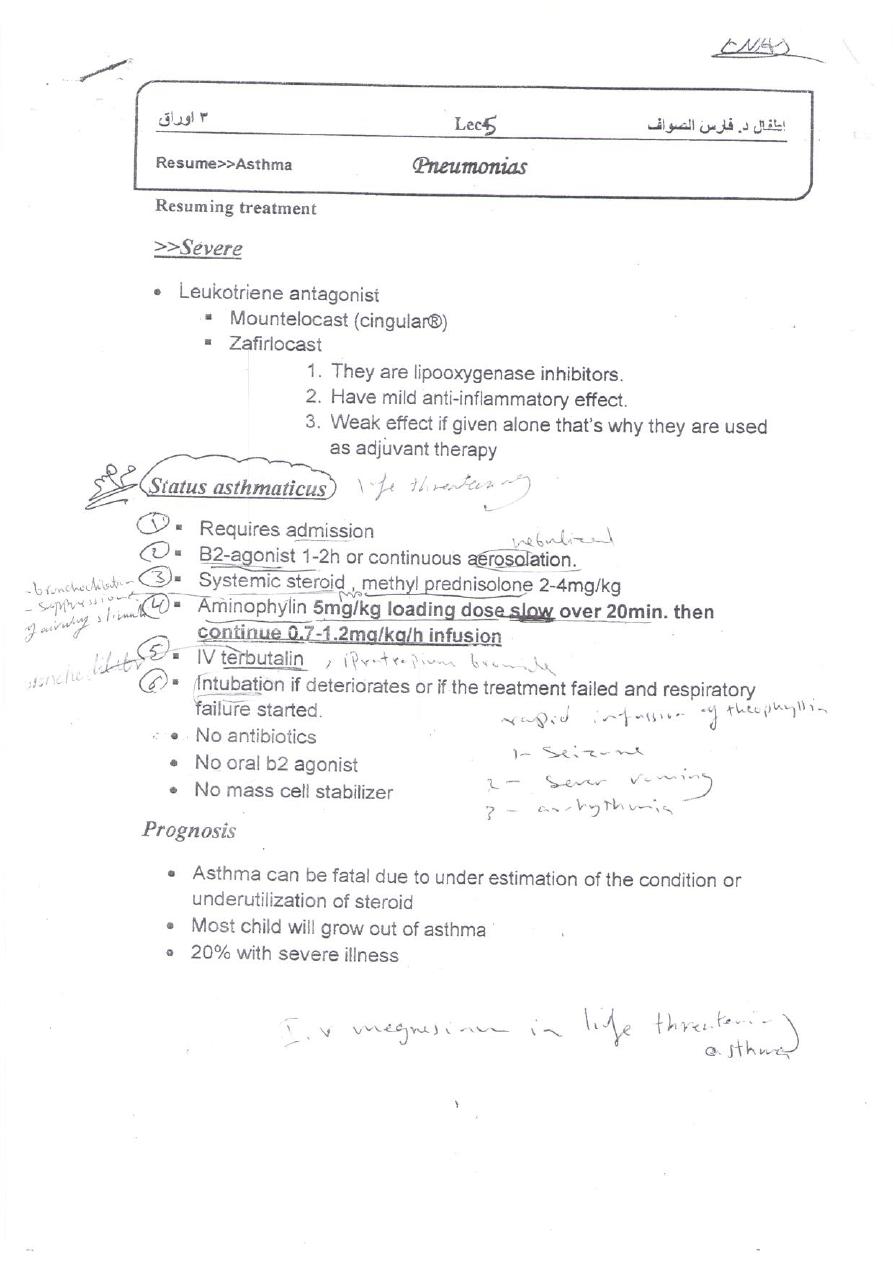 ٣ اوراق Lec5 اطفال د. فارس الصواف
Resume>>Asthma Pneumonias
Resuming treatment
>>Severe
• Leukotriene antagonist
▪ Mountelocast (cingular®)
▪ Zafirlocast
1. They are lipooxygenase inhibitors.
2. Have mild anti-inflammatory effect.
3. Weak effect if given alone that's why they are used
as adjuvant therapy
Status asthmaticus life threatening
1 ▪ Requires admission
nebulized
2 ▪ B2-agonist 1-2h or continuous aerosolation.
3 ▪ Systemic steroid , methyl prednisolone 2-4mg/kg
4 ▪ Aminophylin 5mg/kg loading dose slow over 20min. then
continue 0.7-1.2mg/kg/h infusion
5 ▪ IV terbutalin , ipratropium bromide
6 ▪ Intubation if deteriorates or if the treatment failed and respiratory
failure started.
rapid infussion of theophyllin
• No antibiotics
1- Seizure
• No oral b2 agonist
2- Sever
• No mass cell stabilizer
3- arrhythmia
Prognosis
• Asthma can be fatal due to under estimation of the condition or
underutilization of steroid
• Most child will grow out of asthma
• 20% with severe illness
I.v megnesium in life threatening
asthma
١